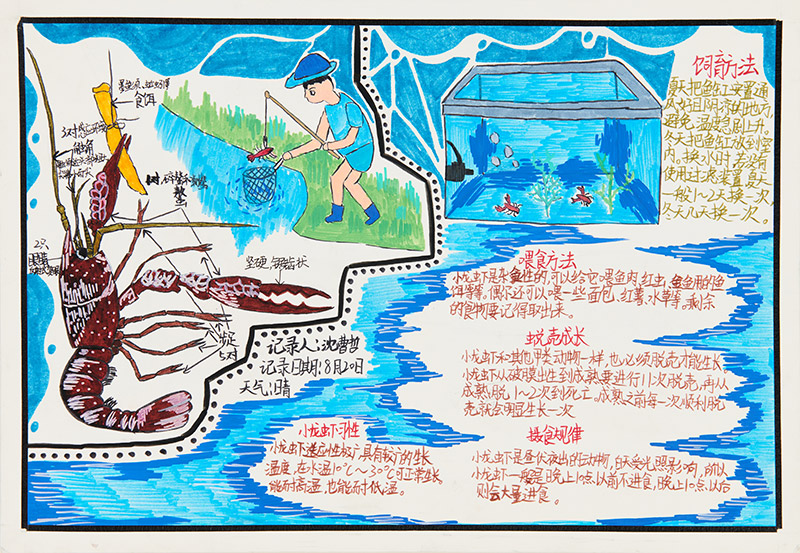 食饵
触角
螯
2只
坚硬,锯齿状
步足
5对
记录人:沈
记录日期:8月20日
天气:晴
饲育方法
夏天把鱼缸安置通
风好且阴凉的地方,
避免温度急剧上升。
冬天把鱼缸放到室
内。换水时,若没有
使用过滤装置,夏天
一般1~2天换一次,
冬天几天换一次。
喂食方法
小龙虾是杂食性的,可以给它喂鱼肉、红虫、金鱼用的鱼
饵等等。偶尔还可以喂一些面包、红薯、水草等。剩余
的食物要记得取出来。
蜕壳成长
小龙虾和其他甲壳动物一样,也必须脱壳才能生长,
小龙虾从破膜出生到成熟要进行11次脱壳,再从
成熟脱1~2次到死亡。成熟之前每一次顺利脱
壳就会明显生长一次
摄食规律
小龙虾是昼伏夜出的动物,白天受光照影响,所以
小龙虾一般是晚上10点以前不进食,晚上10点以后
则会大量进食。
小龙虾习性
小龙虾适应性极广,具有较广的生长
温度,在水温10℃~30℃可正常生长
能耐高温,也能耐低温。